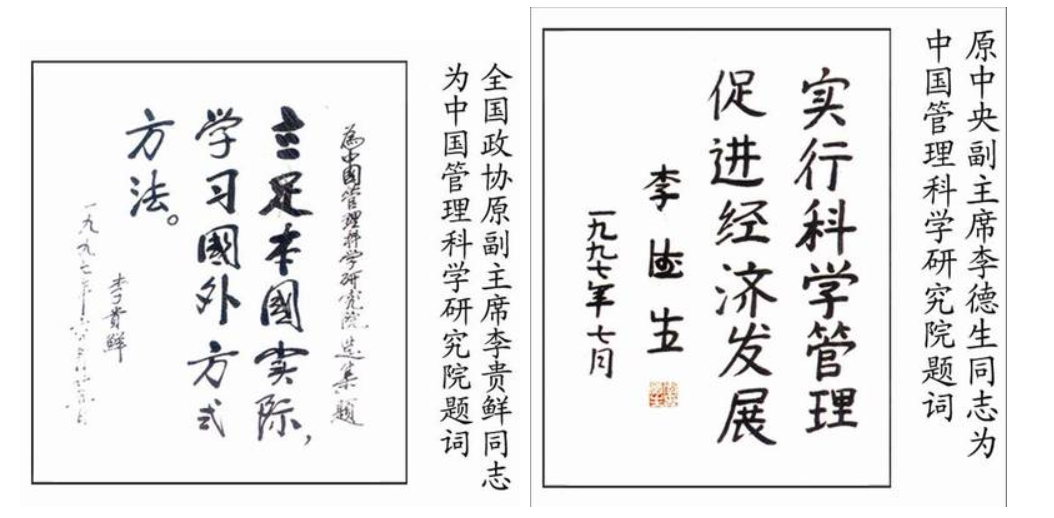 全国政协原副主席李贵鲜同志
为中国管理科学研究院题词
為中國管理科学研究院选集题
立足本國实际，
学习國外方式
方法。
李貴鲜
一九九七年
原中央副主席李德生同志为
中国管理科学研究院题词
实行科学管理
促进经济发展
李德生
一九九七年七月